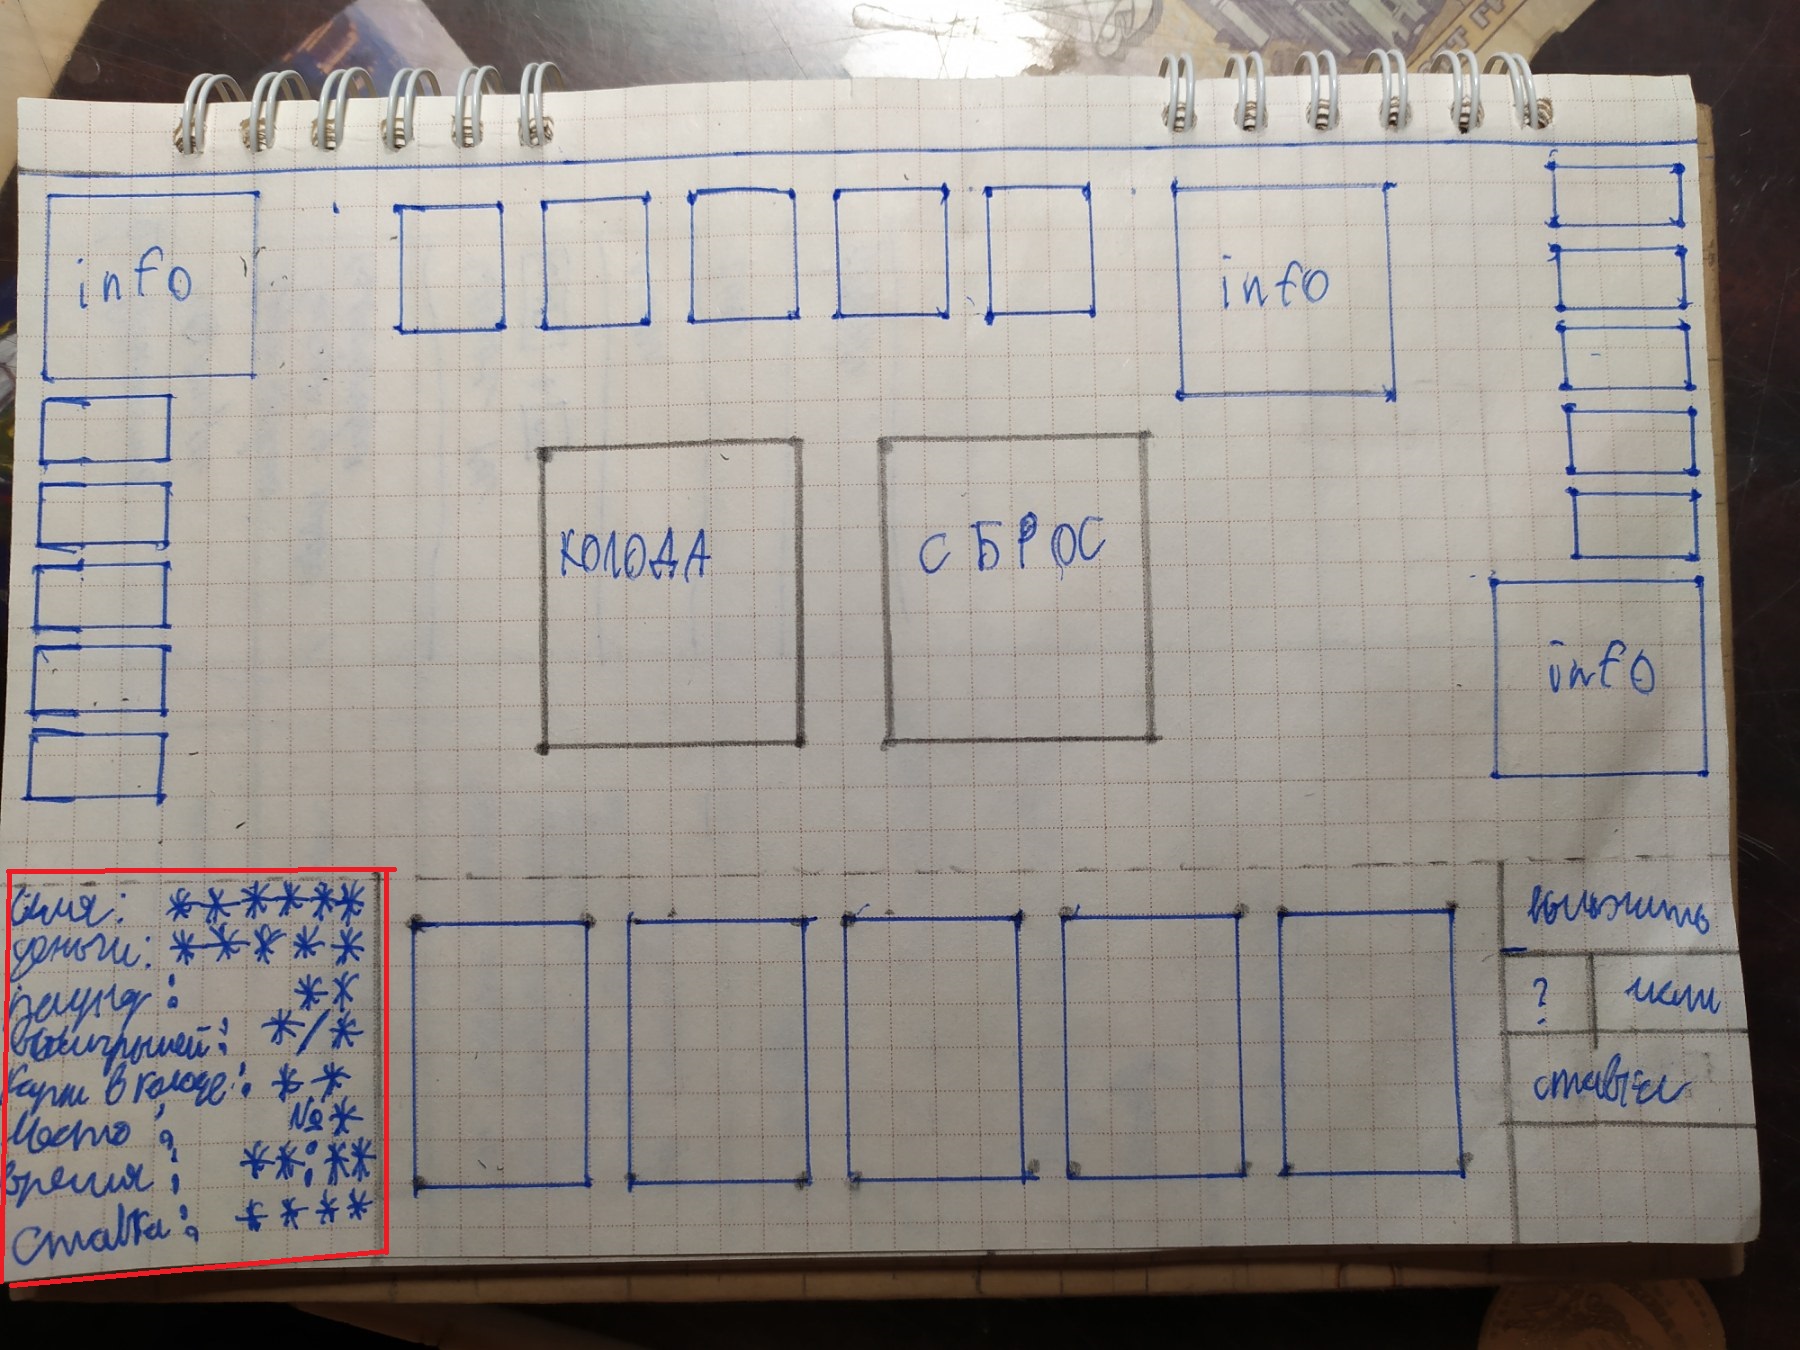 info
info
КОЛОДА
СБРОС
info
имя: ******
деньги: *****
Раунд: **
выигрышей: */*
Карт в колоде: **
Место: №*
время: **:**
ставка: ****
выложить
?
ставка